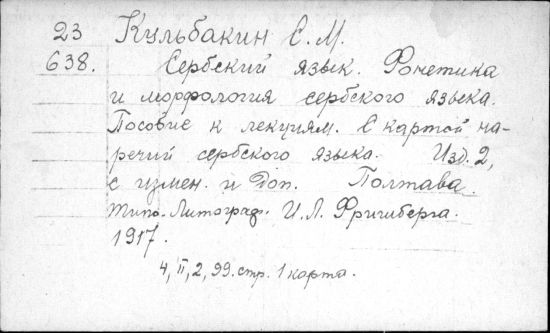 23 Кульбакин С. М.
638. Сербский язык. Фонетика
и морфология сербского языка.
Пособие к лекциям. С картой на-
речий сербского языка. Изд. 2,
с измен. и Доп. Полтава.
Типо-Литограф. И. Л. Фришберга.
1917.
4, II, 2, 99. стр. 1 карта.